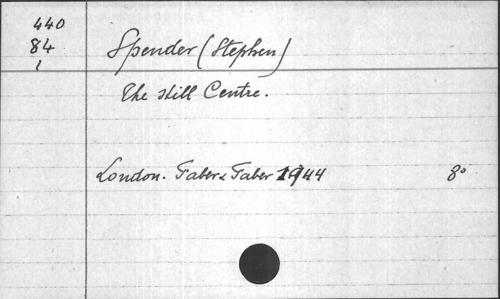 440
84
1
Spender (Stephen)
The still Centre.
London. Faber & Faber 1944 8°